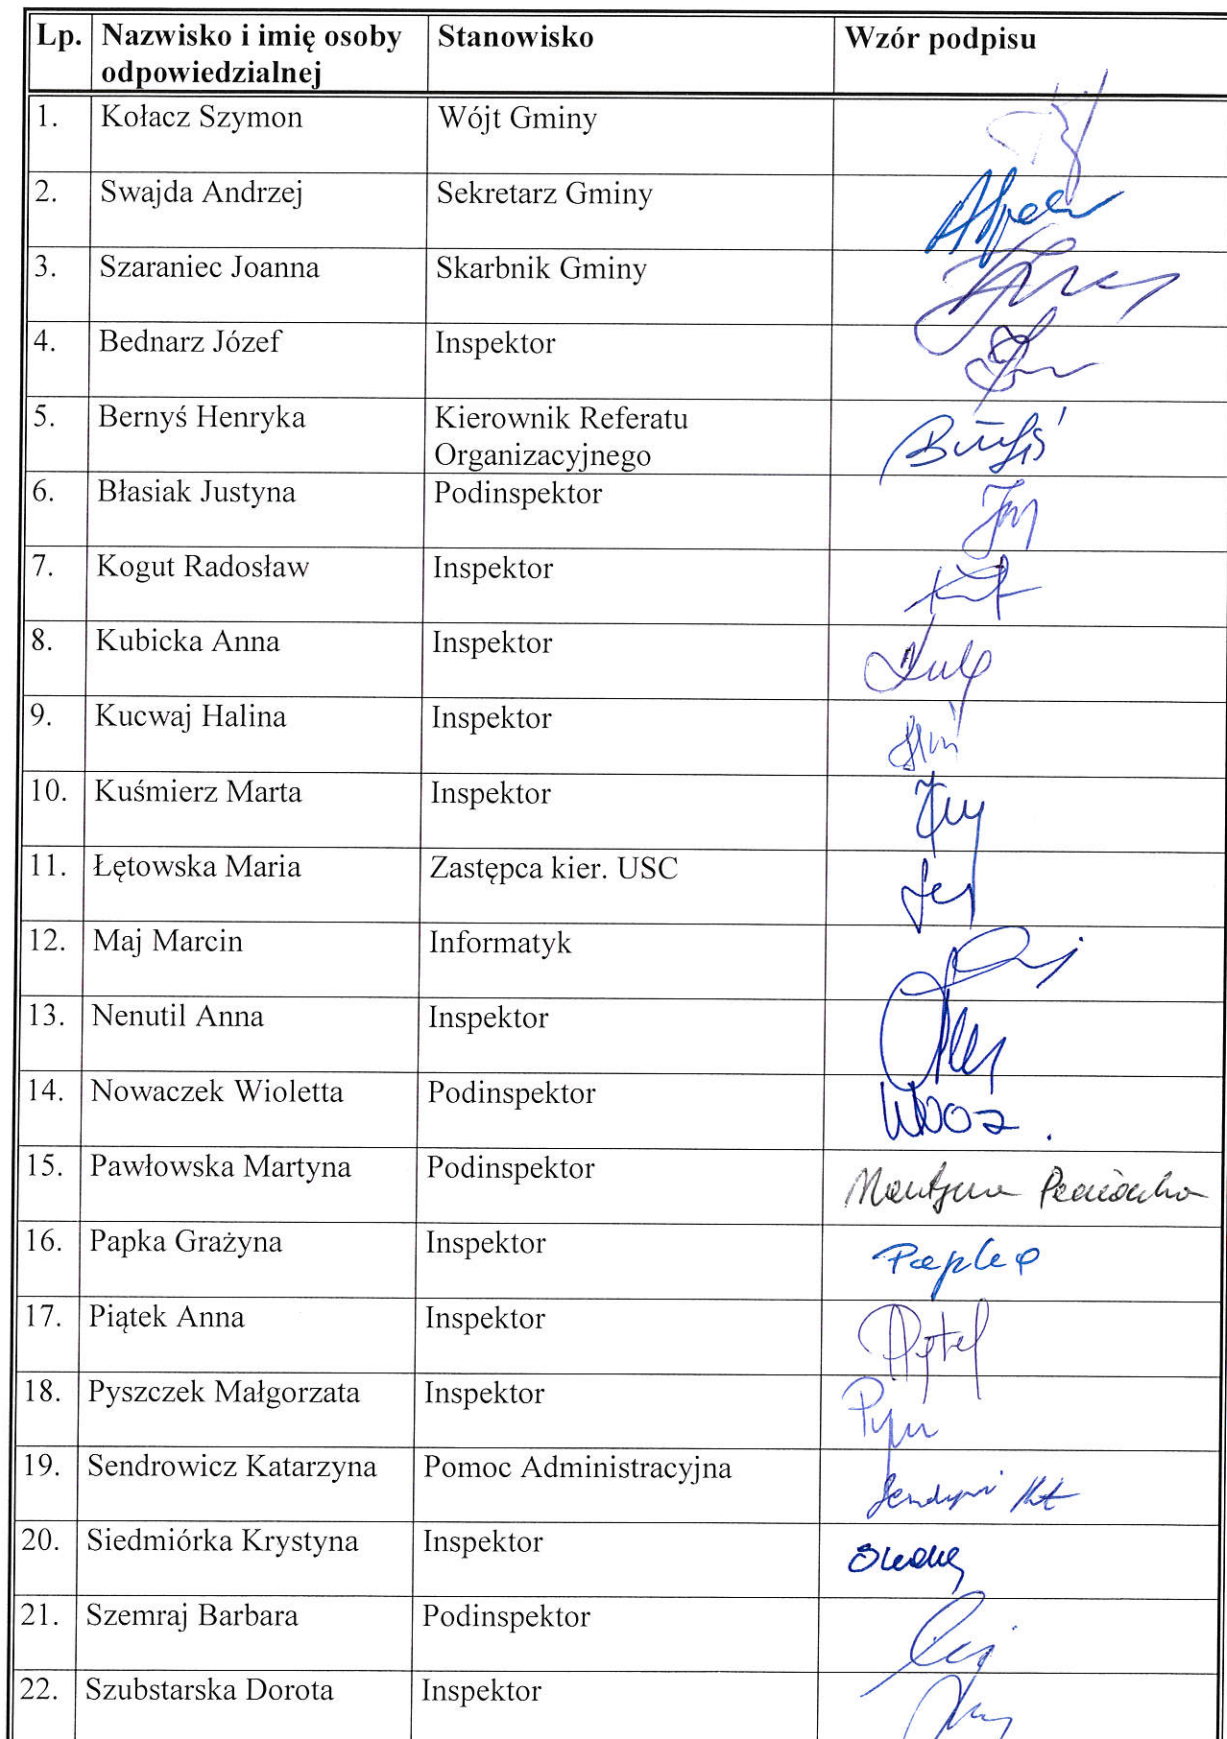 Lp. Nazwisko i imię osoby Stanowisko Wzór podpisu
odpowiedzialnej
1. Kołacz Szymon Wójt Gminy
2. Swajda Andrzej Sekretarz Gminy
3. Szaraniec Joanna Skarbnik Gminy
4. Bednarz Józef Inspektor
5. Bernyś Henryka Kierownik Referatu
Organizacyjnego
6. Błasiak Justyna Podinspektor
7. Kogut Radosław Inspektor
8. Kubicka Anna Inspektor
9. Kucwaj Halina Inspektor
10. Kuśmierz Marta Inspektor
11. Łętowska Maria Zastępca kier. USC
12. Maj Marcin Informatyk
13. Nenutil Anna Inspektor
14. Nowaczek Wioletta Podinspektor
15. Pawłowska Martyna Podinspektor
16. Papka Grażyna Inspektor
17. Piątek Anna Inspektor
18. Pyszczek Małgorzata Inspektor
19. Sendrowicz Katarzyna Pomoc Administracyjna
20. Siedmiórka Krystyna Inspektor
21. Szemraj Barbara Podinspektor
22. Szubstarska Dorota Inspektor